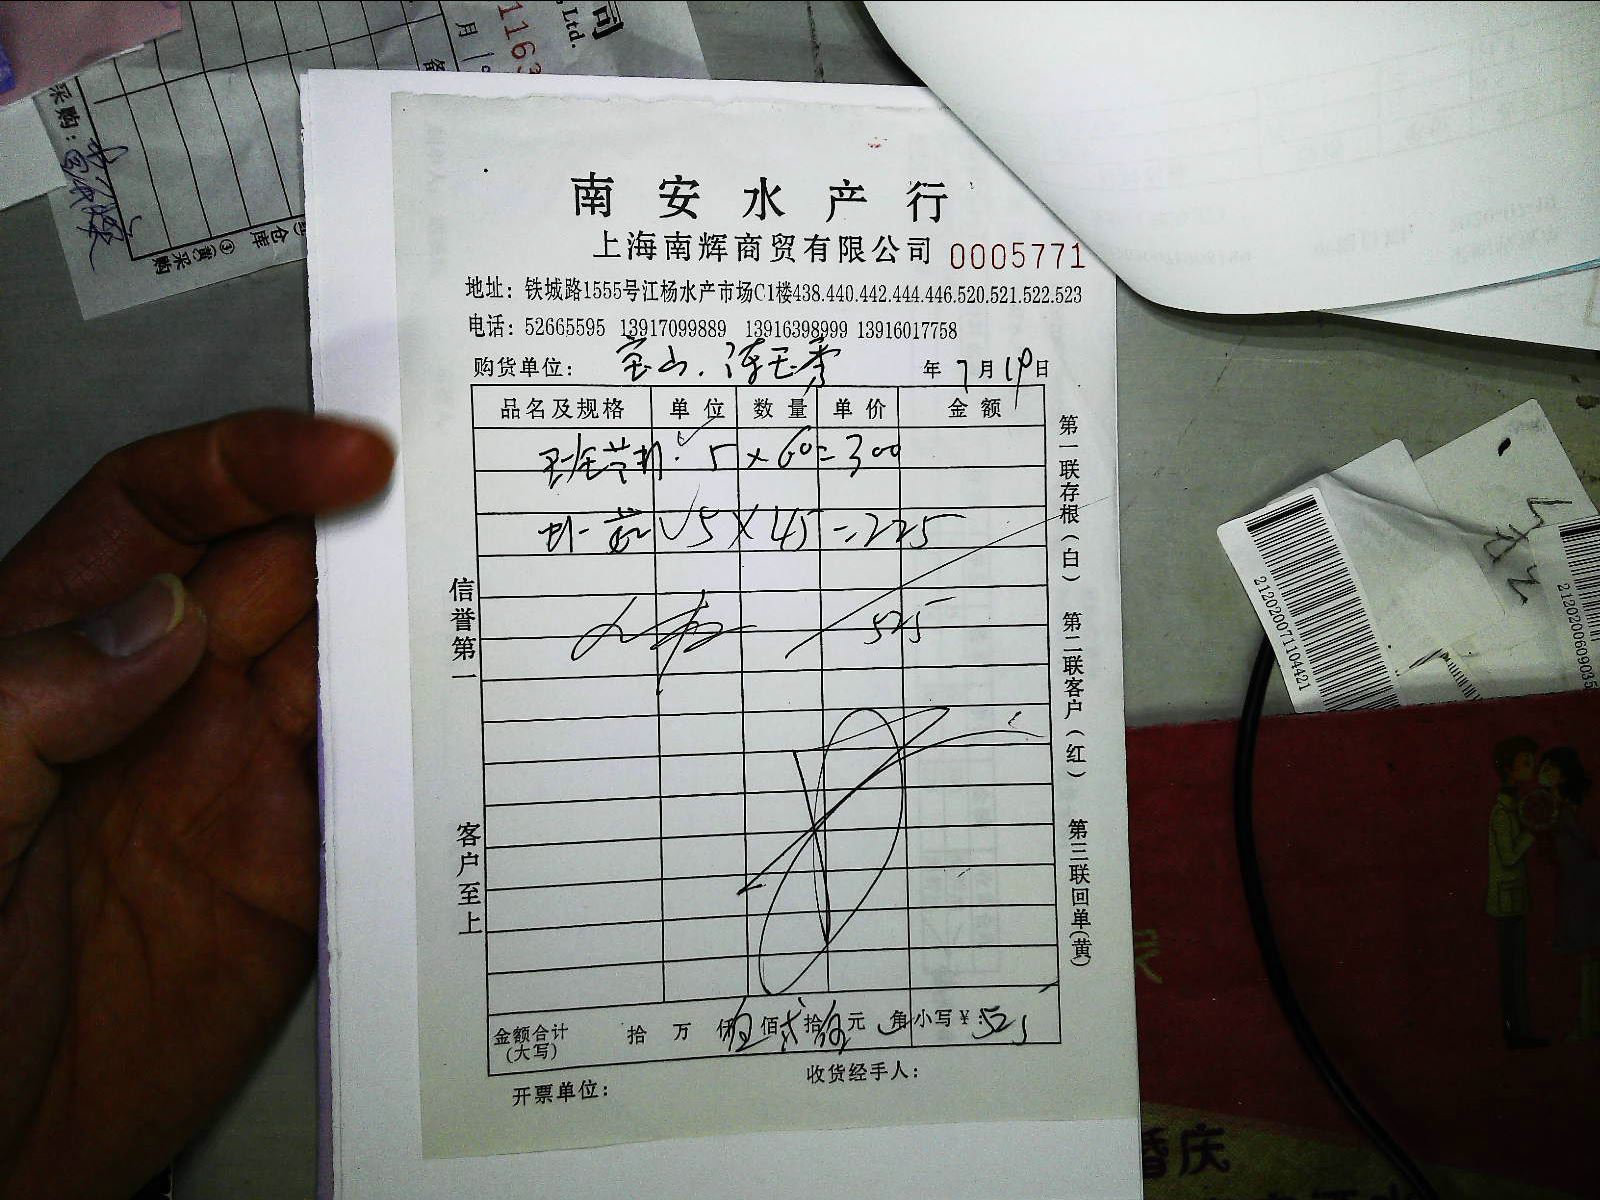 南安水产行
上海南辉商贸有限公司 0005771
地址：铁城路1555号江杨水产市场C1楼438.440.442.444.446.520.521.522.523
电话：52665595 13917099889 13916398999 13916017758
购货单位：宝山.陈玉秀 年7月19日
品名及规格 单位 数量 单价 金额
5×60=300
5×45=225
525
金额合计(大写) 拾 万 仟伍佰贰拾伍元 角 小写￥：525
开票单位： 收货经手人：
信誉第一
客户至上
第一联存根(白)
第二联客户(红)
第三联回单(黄)
司
, Ltd.
1163
月
采购：
仓库
③(黄)采购
2120200711044421
2120200609035
婚庆